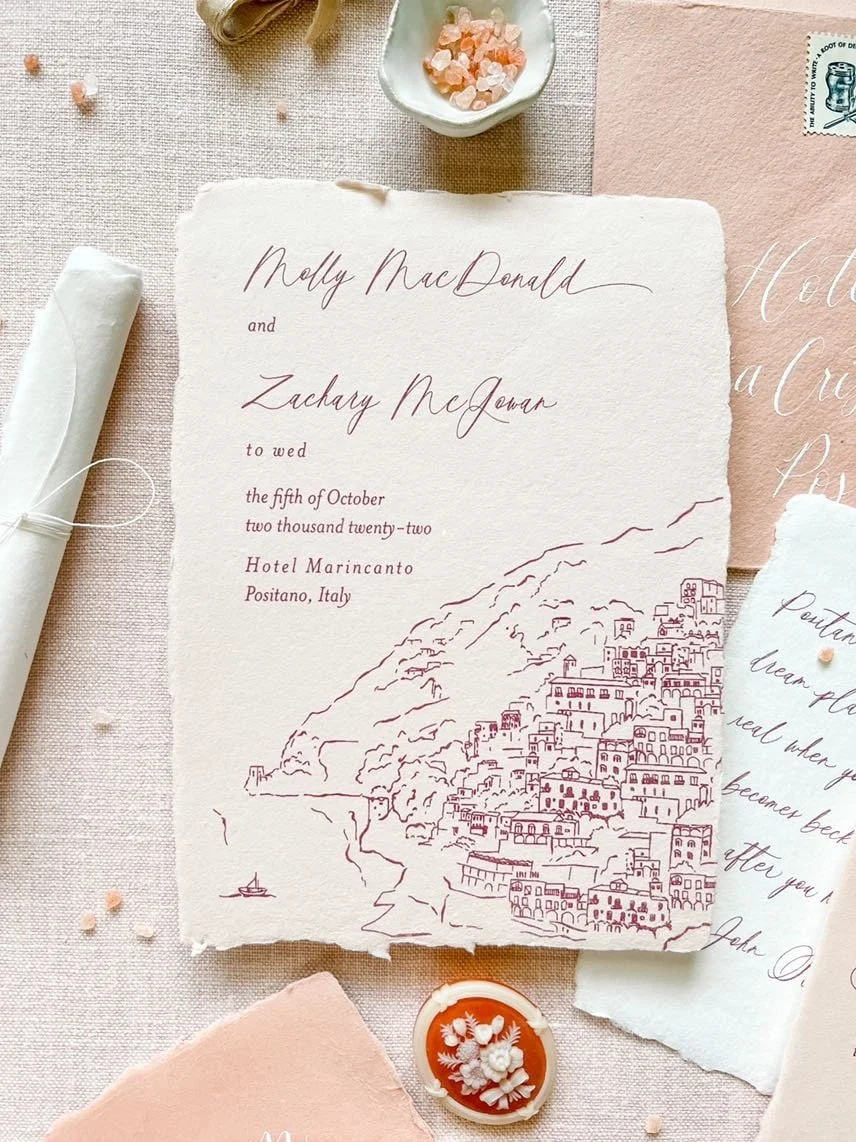 Molly MacDonald
and
Zachary McGowan
to wed
the fifth of October
two thousand twenty-two
Hotel Marincanto
Positano, Italy
THE ABILITY TO WRITE · A ROOT OF DE
Hot
a Cris
Pos
Positan
dream pla
real when yo
becomes beck
after you
John